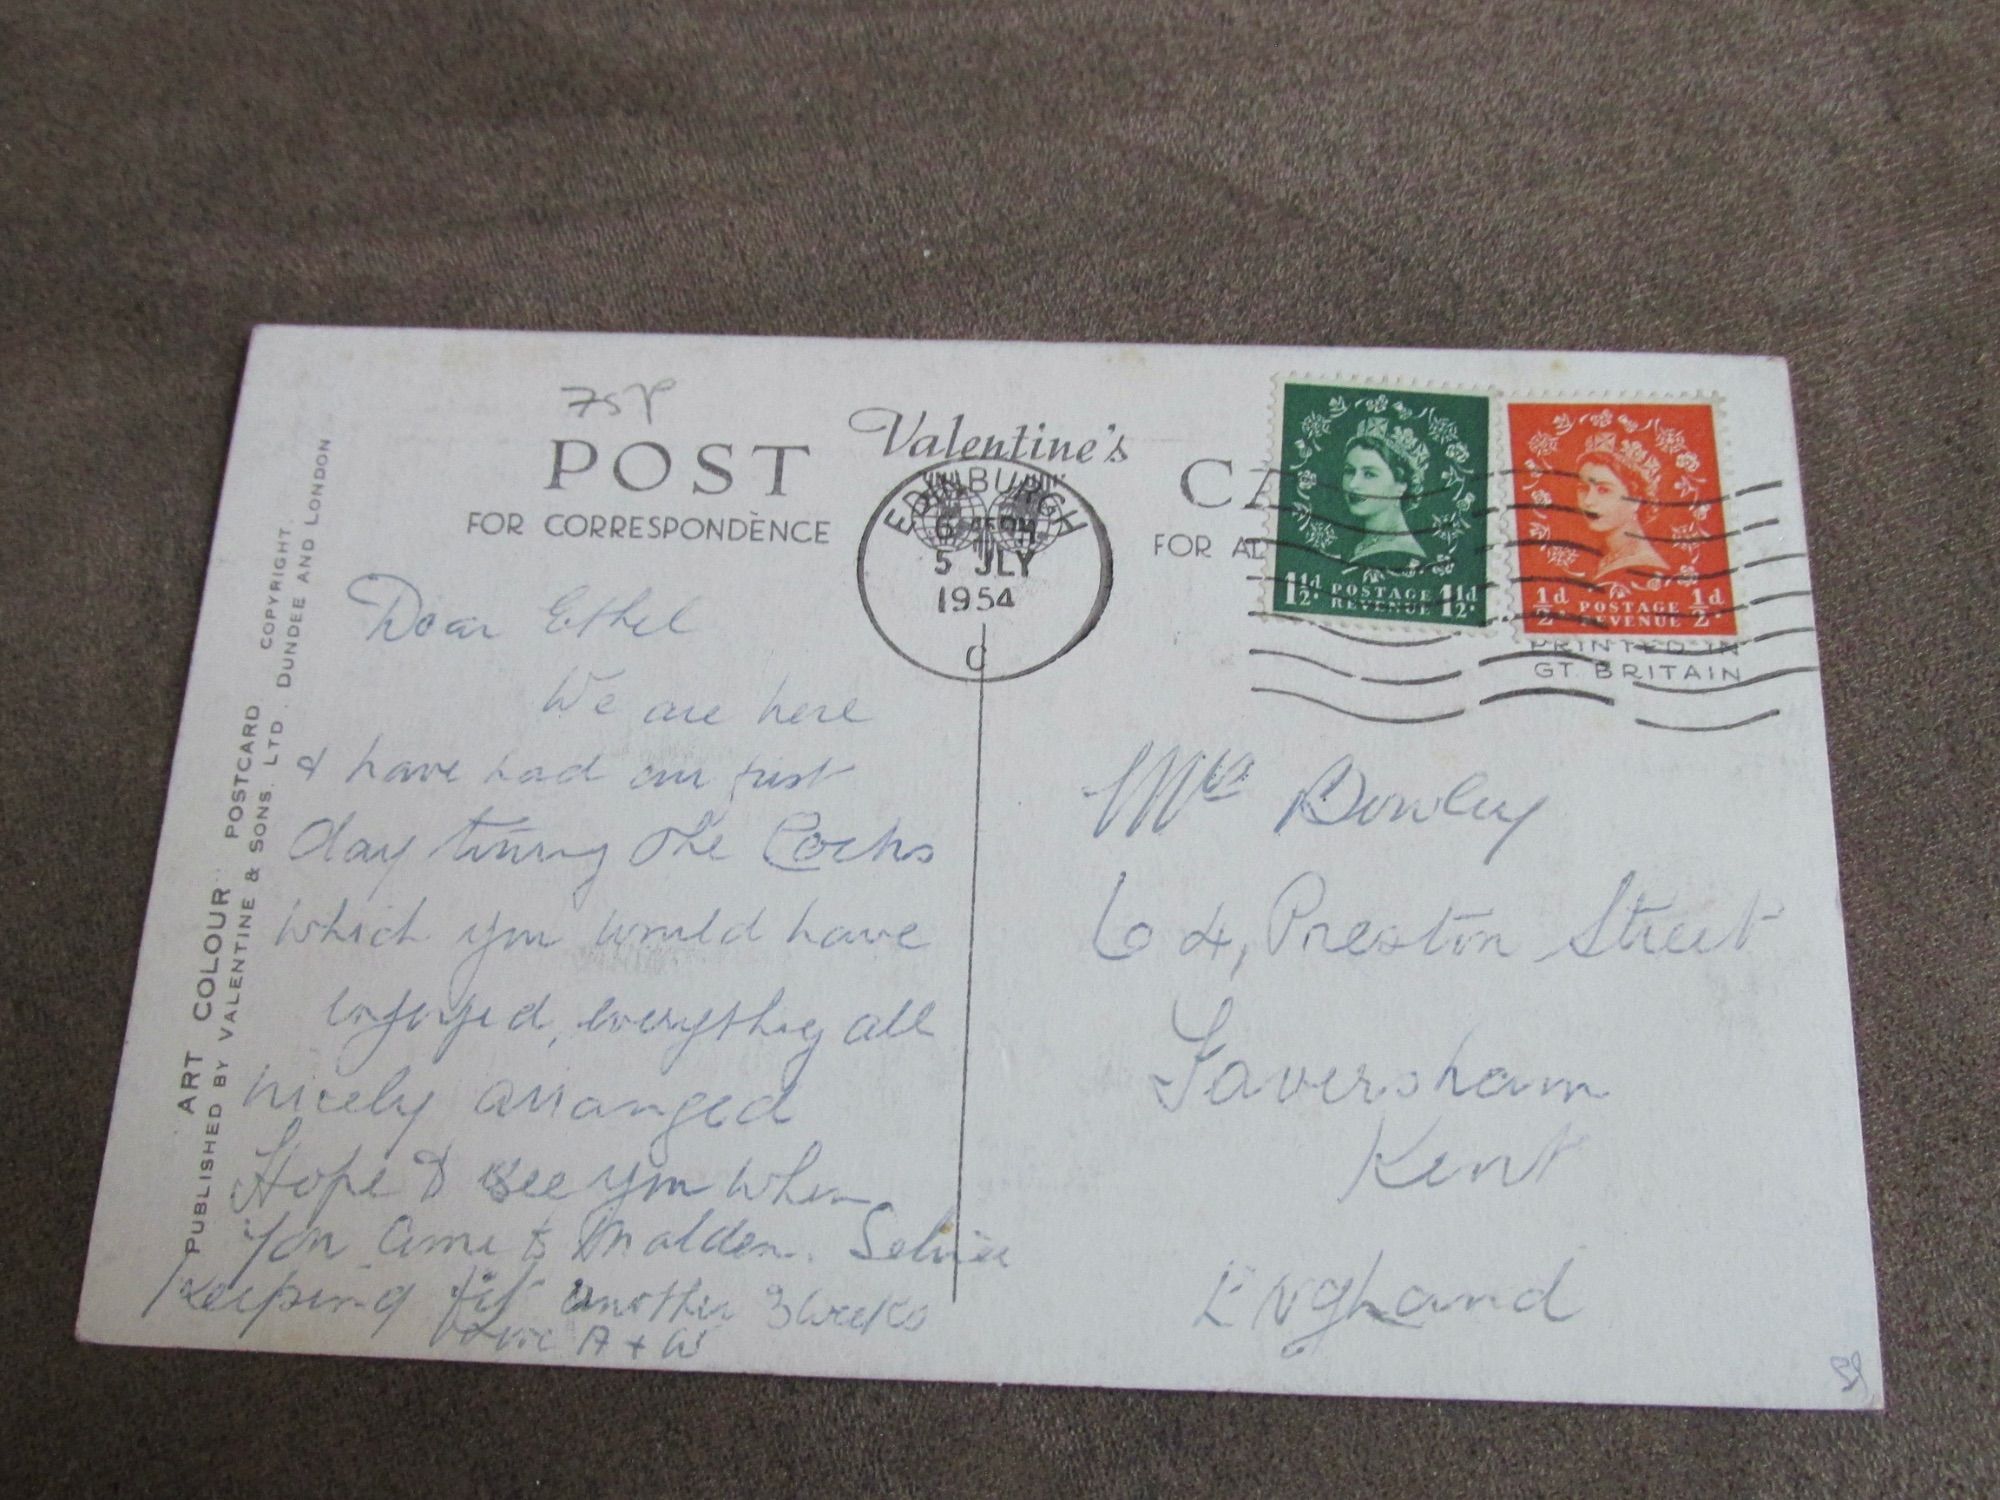 75p
POST
Valentine's
CA
FOR CORRESPONDENCE
FOR AD
EDINBURGH
6 45 PM
5 JLY
1954
C
1½d. POSTAGE REVENUE 1½d.
½d. POSTAGE REVENUE ½d.
PRINTED IN
GT. BRITAIN
ART COLOUR POSTCARD COPYRIGHT
PUBLISHED BY VALENTINE & SONS. LTD. DUNDEE AND LONDON
Dear Ethel
We are here
& have had our first
day touring the Lochs
which you would have
enjoyed, everything all
nicely arranged
Hope to see you when
you come to Malden.
Keeping fit another 3 weeks
Love A + W
Mrs Bowley
64, Preston Street
Faversham
Kent
England